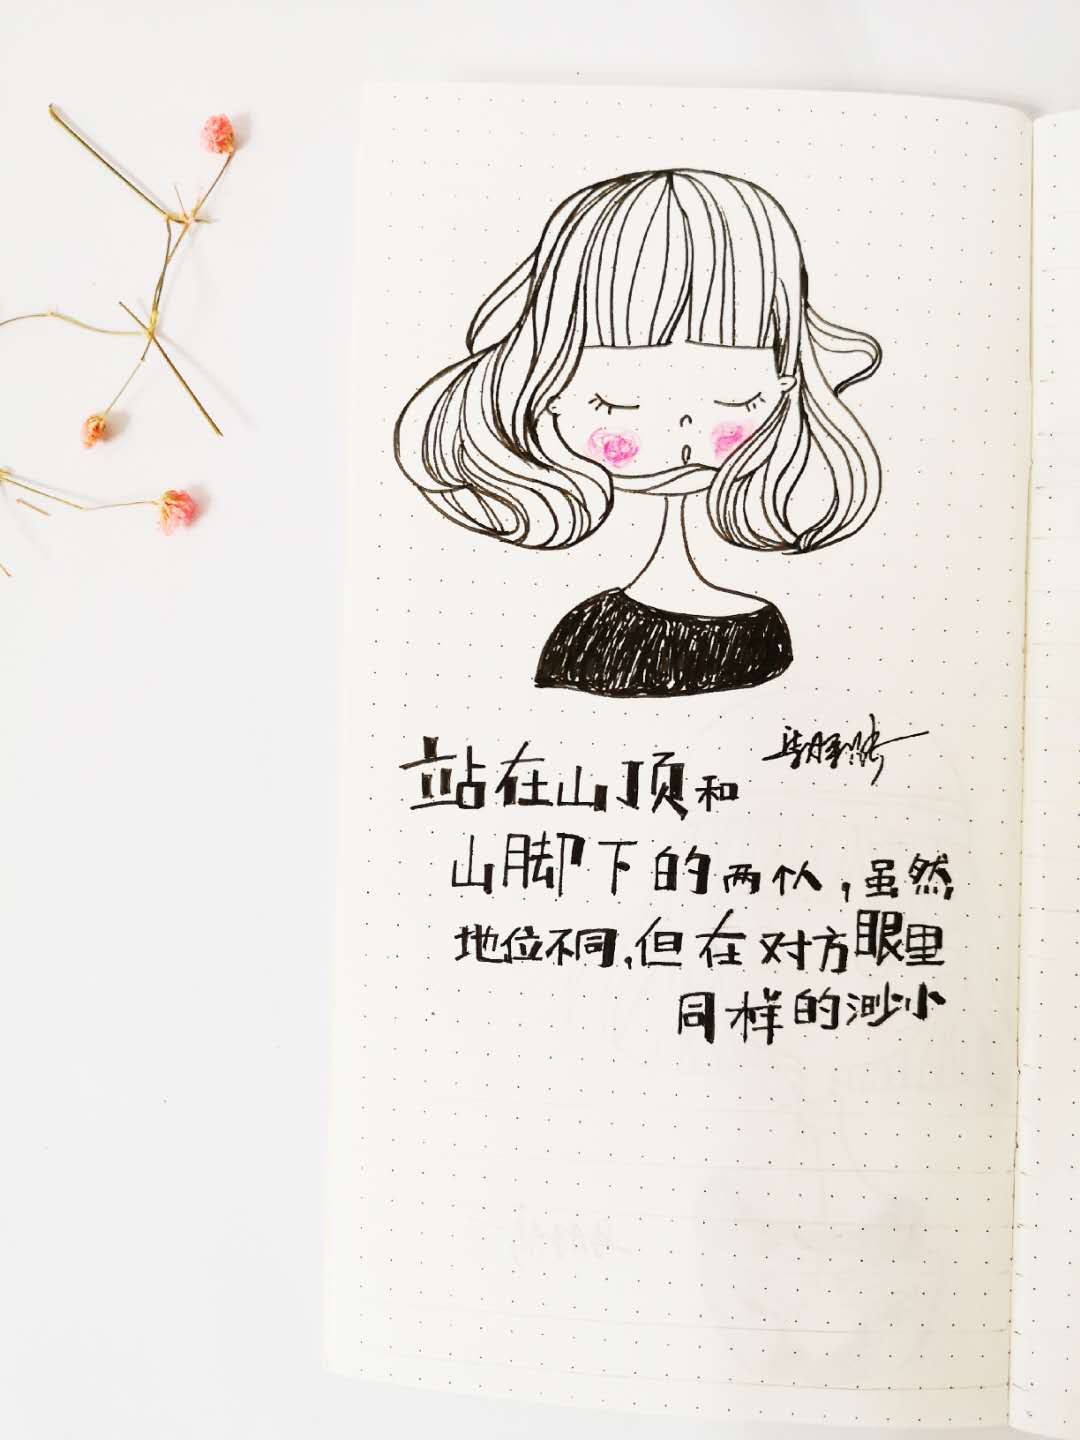 站在山顶和
山脚下的两个人，虽然
地位不同，但在对方眼里
同样的渺小